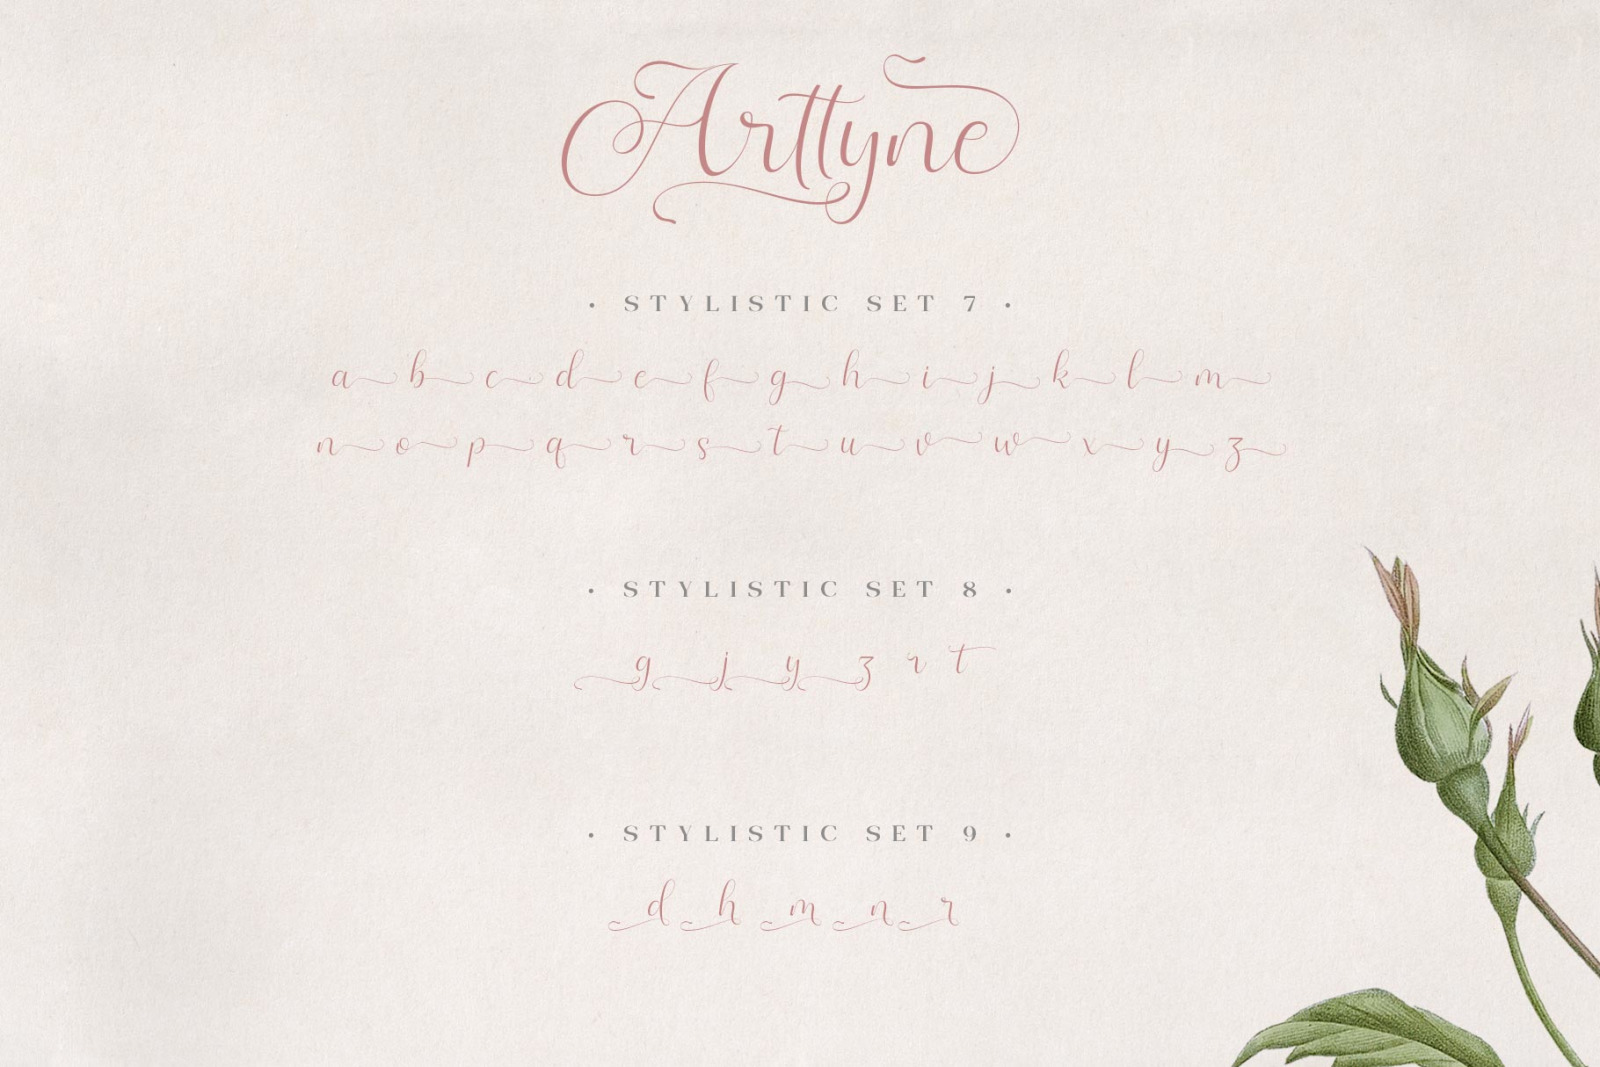 Arttyne
· STYLISTIC SET 7 ·
a b c d e f g h i j k l m
n o p q r s t u v w x y z
· STYLISTIC SET 8 ·
g j y z r t
· STYLISTIC SET 9 ·
d h m n r